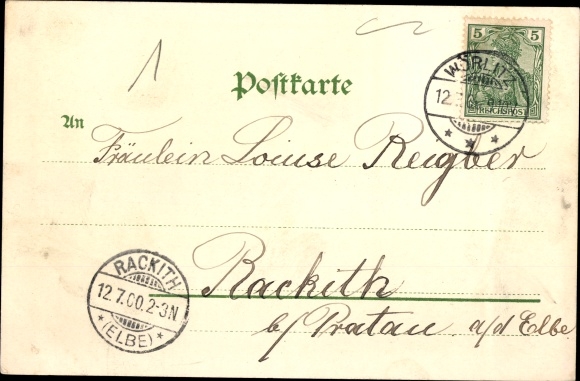 5 5
REICHSPOST
WÖRLITZ
12.
Postkarte
An
Fräulein Louise
Rackith
b/ Pratau a/d Elbe
RACKITH
12.7.00.2-3N
* (ELBE) *